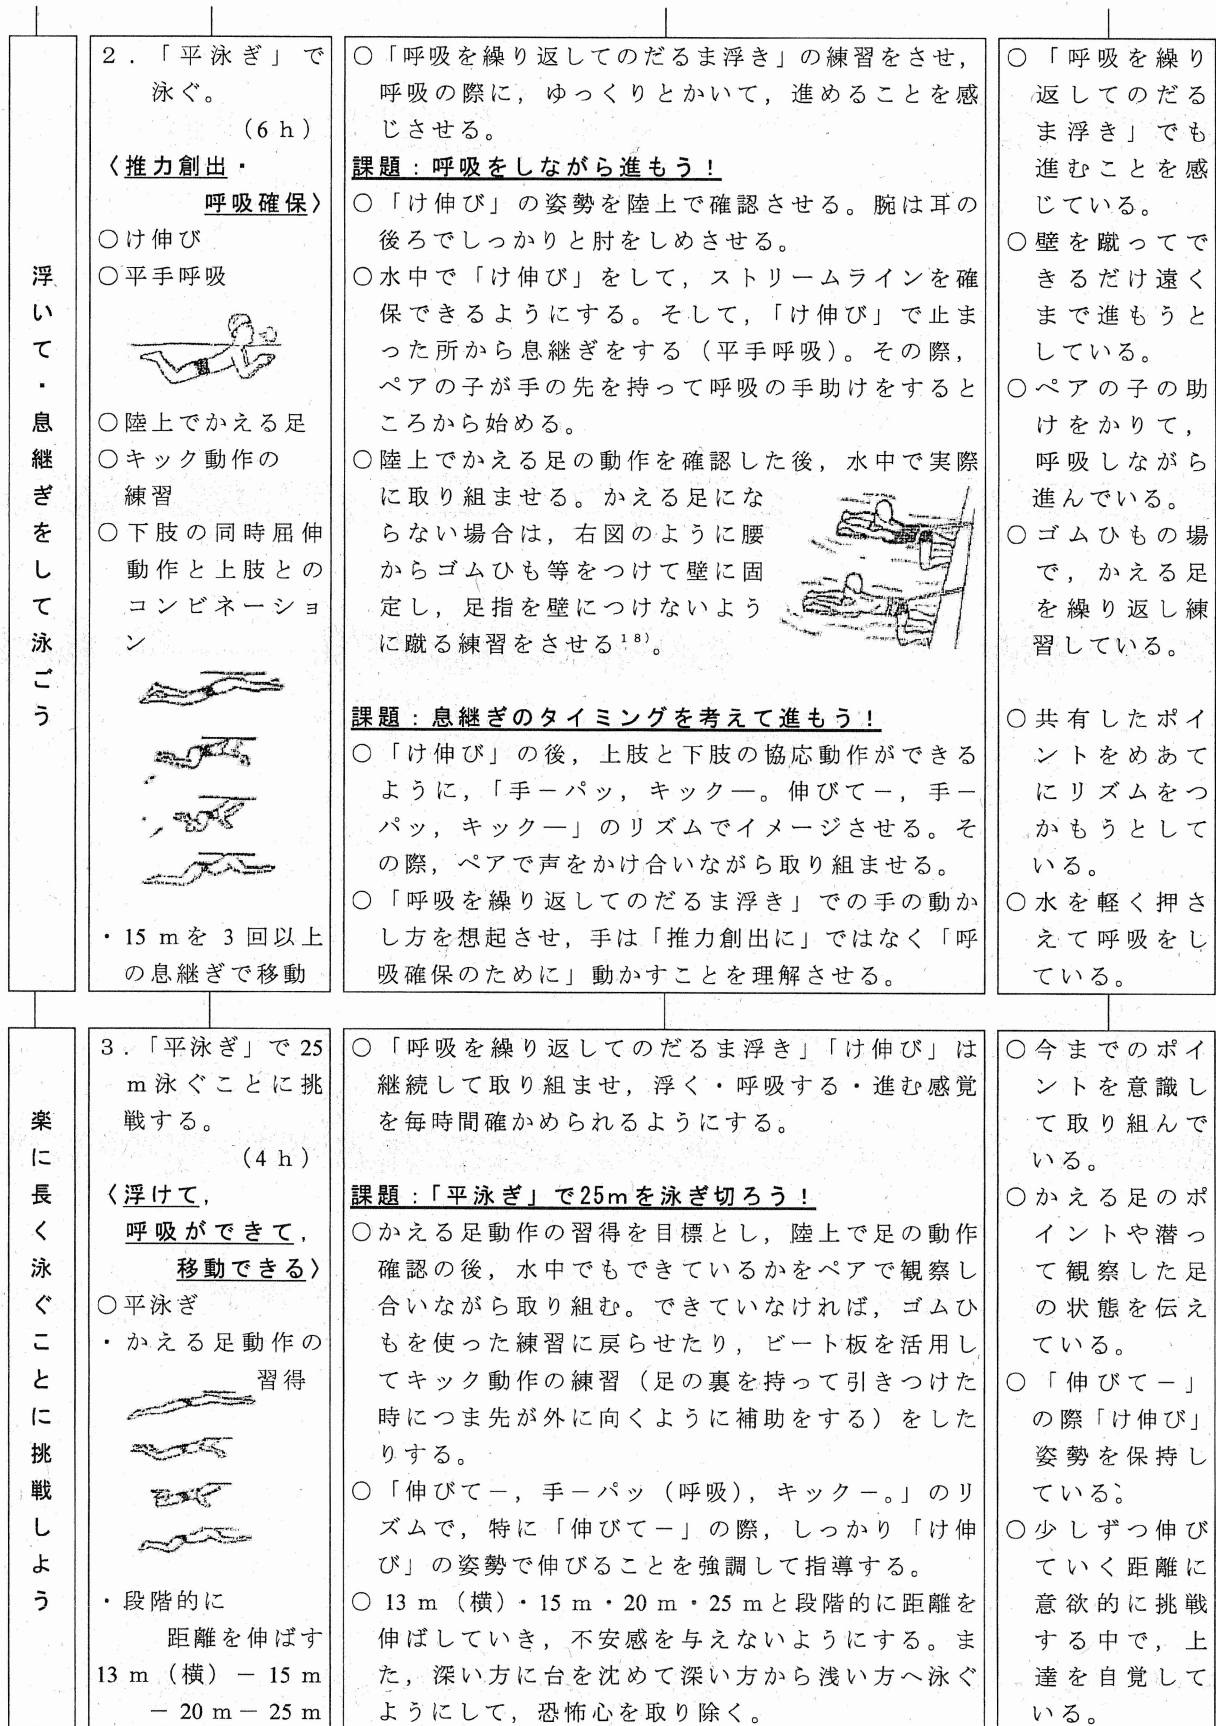 浮いて・息継ぎをして泳ごう
2．「平泳ぎ」で
泳ぐ。
（6 h）
〈推力創出・
呼吸確保〉
○け伸び
○平手呼吸
○陸上でかえる足
○キック動作の
練習
○下肢の同時屈伸
動作と上肢との
コンビネーショ
ン
・15 mを 3 回以上
の息継ぎで移動
○「呼吸を繰り返してのだるま浮き」の練習をさせ，
呼吸の際に，ゆっくりとかいて，進めることを感
じさせる。
課題：呼吸をしながら進もう！
○「け伸び」の姿勢を陸上で確認させる。腕は耳の
後ろでしっかりと肘をしめさせる。
○水中で「け伸び」をして，ストリームラインを確
保できるようにする。そして，「け伸び」で止ま
った所から息継ぎをする（平手呼吸）。その際，
ペアの子が手の先を持って呼吸の手助けをすると
ころから始める。
○陸上でかえる足の動作を確認した後，水中で実際
に取り組ませる。かえる足にな
らない場合は，右図のように腰
からゴムひも等をつけて壁に固
定し，足指を壁につけないよう
に蹴る練習をさせる¹⁸⁾。
課題：息継ぎのタイミングを考えて進もう！
○「け伸び」の後，上肢と下肢の協応動作ができる
ように，「手－パッ，キック―。伸びて－，手－
パッ，キック―」のリズムでイメージさせる。そ
の際，ペアで声をかけ合いながら取り組ませる。
○「呼吸を繰り返してのだるま浮き」での手の動か
し方を想起させ，手は「推力創出に」ではなく「呼
吸確保のために」動かすことを理解させる。
○「呼吸を繰り
返してのだる
ま浮き」でも
進むことを感
じている。
○壁を蹴ってで
きるだけ遠く
まで進もうと
している。
○ペアの子の助
けをかりて，
呼吸しながら
進んでいる。
○ゴムひもの場
で，かえる足
を繰り返し練
習している。
○共有したポイ
ントをめあて
にリズムをつ
かもうとして
いる。
○水を軽く押さ
えて呼吸をし
ている。
楽に長く泳ぐことに挑戦しよう
3．「平泳ぎ」で 25
m泳ぐことに挑
戦する。
（4 h）
〈浮けて，
呼吸ができて，
移動できる〉
○平泳ぎ
・かえる足動作の
習得
・段階的に
距離を伸ばす
13 m（横）－ 15 m
－ 20 m－ 25 m
○「呼吸を繰り返してのだるま浮き」「け伸び」は
継続して取り組ませ，浮く・呼吸する・進む感覚
を毎時間確かめられるようにする。
課題：「平泳ぎ」で25mを泳ぎ切ろう！
○かえる足動作の習得を目標とし，陸上で足の動作
確認の後，水中でもできているかをペアで観察し
合いながら取り組む。できていなければ，ゴムひ
もを使った練習に戻らせたり，ビート板を活用し
てキック動作の練習（足の裏を持って引きつけた
時につま先が外に向くように補助をする）をした
りする。
○「伸びて－，手－パッ（呼吸），キック－。」のリ
ズムで，特に「伸びて－」の際，しっかり「け伸
び」の姿勢で伸びることを強調して指導する。
○ 13 m（横）・15 m・20 m・25 mと段階的に距離を
伸ばしていき，不安感を与えないようにする。ま
た，深い方に台を沈めて深い方から浅い方へ泳ぐ
ようにして，恐怖心を取り除く。
○今までのポイ
ントを意識し
て取り組んで
いる。
○かえる足のポ
イントや潜っ
て観察した足
の状態を伝え
ている。
○「伸びて－」
の際「け伸び」
姿勢を保持し
ている。
○少しずつ伸び
ていく距離に
意欲的に挑戦
する中で，上
達を自覚して
いる。